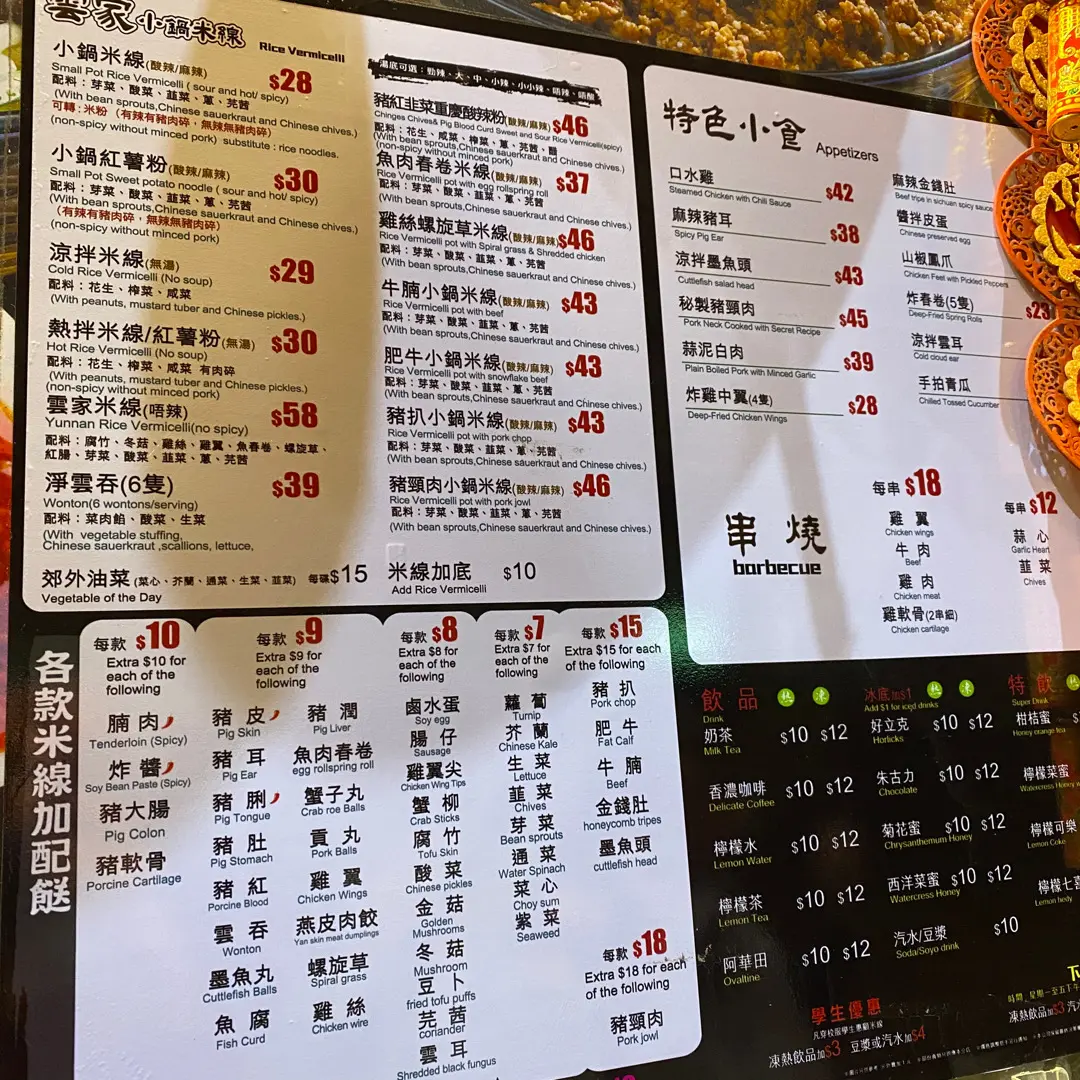 雲家小鍋米線 Rice Vermicelli
小鍋米線(酸辣/麻辣) $28
Small Pot Rice Vermicelli ( sour and hot/ spicy)
配料：芽菜、酸菜、韮菜、蔥、芫茜
(With bean sprouts,Chinese sauerkraut and Chinese chives.)
可轉：米粉（有辣有豬肉碎，無辣無豬肉碎）
(non-spicy without minced pork) substitute : rice noodles.
小鍋紅薯粉(酸辣/麻辣) $30
Small Pot Sweet potato noodle ( sour and hot/ spicy)
配料：芽菜、酸菜、韮菜、蔥、芫茜
(With bean sprouts,Chinese sauerkraut and Chinese chives.)
（有辣有豬肉碎，無辣無豬肉碎）
(non-spicy without minced pork)
涼拌米線(無湯) $29
Cold Rice Vermicelli (No soup)
配料：花生、榨菜、咸菜
(With peanuts, mustard tuber and Chinese pickles.)
熱拌米線/紅薯粉(無湯) $30
Hot Rice Vermicelli (No soup)
配料：花生、榨菜、咸菜 有肉碎
(With peanuts, mustard tuber and Chinese pickles.)
(non-spicy without minced pork)
雲家米線(唔辣) $58
Yunnan Rice Vermicelli(no spicy)
配料：腐竹、冬菇、雞絲、雞翼、魚春卷、螺旋草、
紅腸、芽菜、酸菜、韮菜、蔥、芫茜
淨雲吞(6隻) $39
Wonton(6 wontons/serving)
配料：菜肉餡、酸菜、生菜
(With vegetable stuffing,
Chinese sauerkraut ,scallions, lettuce,
郊外油菜 (菜心、芥蘭、通菜、生菜、韮菜) 每碟$15
Vegetable of the Day
湯底可選：勁辣、大、中、小辣、小小辣、唔辣、唔酸
豬紅韭菜重慶酸辣粉(酸辣/麻辣) $46
Chinges Chives& Pig Blood Curd Sweet and Sour Rice Vermicelli(spicy)
配料：花生、咸菜、榨菜、蔥、芫茜、醋
(With bean sprouts,Chinese sauerkraut and Chinese chives.)
(non-spicy without minced pork)
魚肉春卷米線(酸辣/麻辣) $37
Rice Vermicelli pot with egg rollspring roll
配料：芽菜、酸菜、韮菜、蔥、芫茜
(With bean sprouts,Chinese sauerkraut and Chinese chives.)
雞絲螺旋草米線(酸辣/麻辣) $46
Rice Vermicelli pot with Spiral grass & Shredded chicken
配料：芽菜、酸菜、韮菜、蔥、芫茜
(With bean sprouts,Chinese sauerkraut and Chinese chives.)
牛腩小鍋米線(酸辣/麻辣) $43
Rice Vermicelli pot with beef
配料：芽菜、酸菜、韮菜、蔥、芫茜
(With bean sprouts,Chinese sauerkraut and Chinese chives.)
肥牛小鍋米線(酸辣/麻辣) $43
Rice Vermicelli pot with snowflake beef
配料：芽菜、酸菜、韮菜、蔥、芫茜
(With bean sprouts,Chinese sauerkraut and Chinese chives.)
豬扒小鍋米線(酸辣/麻辣) $43
Rice Vermicelli pot with pork chop
配料：芽菜、酸菜、韮菜、蔥、芫茜
(With bean sprouts,Chinese sauerkraut and Chinese chives.)
豬頸肉小鍋米線(酸辣/麻辣) $46
Rice Vermicelli pot with pork jowl
配料：芽菜、酸菜、韮菜、蔥、芫茜
(With bean sprouts,Chinese sauerkraut and Chinese chives.)
米線加底 $10
Add Rice Vermicelli
特色小食 Appetizers
口水雞 $42
Steamed Chicken with Chili Sauce
麻辣豬耳 $38
Spicy Pig Ear
涼拌墨魚頭 $43
Cuttlefish salad head
秘製豬頸肉 $45
Pork Neck Cooked with Secret Recipe
蒜泥白肉 $39
Plain Boiled Pork with Minced Garlic
炸雞中翼(4隻) $28
Deep-Fried Chicken Wings
麻辣金錢肚
Beef tripe in sichuan spicy sauce
醬拌皮蛋
Chinese preserved egg
山椒鳳爪
Chicken Feet with Pickled Peppers
炸春卷(5隻) $23
Deep-Fried Spring Rolls
涼拌雲耳
Cold cloud ear
手拍青瓜
Chilled Tossed Cucumber
串燒
barbecue
每串 $18
雞翼
Chicken wings
牛肉
Beef
雞肉
Chicken meat
雞軟骨(2串細)
Chicken cartilage
每串 $12
蒜心
Garlic Heart
韮菜
Chives
各款米線加配餸
每款 $10
Extra $10 for
each of the
following
腩肉
Tenderloin (Spicy)
炸醬
Soy Bean Paste (Spicy)
豬大腸
Pig Colon
豬軟骨
Porcine Cartilage
每款 $9
Extra $9 for
each of the
following
豬皮
Pig Skin
豬耳
Pig Ear
豬脷
Pig Tongue
豬肚
Pig Stomach
豬紅
Porcine Blood
雲吞
Wonton
墨魚丸
Cuttlefish Balls
魚腐
Fish Curd
豬潤
Pig Liver
魚肉春卷
egg rollspring roll
蟹子丸
Crab roe Balls
貢丸
Pork Balls
雞翼
Chicken Wings
燕皮肉餃
Yan skin meat dumplings
螺旋草
Spiral grass
雞絲
Chicken wire
每款 $8
Extra $8 for
each of the
following
鹵水蛋
Soy egg
腸仔
Sausage
雞翼尖
Chicken Wing Tips
蟹柳
Crab Sticks
腐竹
Tofu Skin
酸菜
Chinese pickles
金菇
Golden
Mushrooms
冬菇
Mushroom
豆卜
fried tofu puffs
芫茜
coriander
雲耳
Shredded black fungus
每款 $7
Extra $7 for
each of the
following
蘿蔔
Turnip
芥蘭
Chinese Kale
生菜
Lettuce
韮菜
Chives
芽菜
Bean sprouts
通菜
Water Spinach
菜心
Choy sum
紫菜
Seaweed
每款 $15
Extra $15 for each
of the following
豬扒
Pork chop
肥牛
Fat Calf
牛腩
Beef
金錢肚
honeycomb tripes
墨魚頭
cuttlefish head
每款 $18
Extra $18 for each
of the following
豬頸肉
Pork jowl
飲品 熱 凍
Drink
奶茶 $10 $12
Milk Tea
香濃咖啡 $10 $12
Delicate Coffee
檸檬水 $10 $12
Lemon Water
檸檬茶 $10 $12
Lemon Tea
阿華田 $10 $12
Ovaltine
冰底加$1 熱 凍
Add $1 for iced drinks
好立克 $10 $12
Horlicks
朱古力 $10 $12
Chocolate
菊花蜜 $10 $12
Chrysanthemum Honey
西洋菜蜜 $10 $12
Watercress Honey
汽水/豆漿 $10
Soda/Soyo drink
特飲
Super Drink
柑桔蜜
Honey orange tea
檸檬菜蜜
Watercress Honey
檸檬可樂
Lemon Coke
檸檬七喜
學生優惠
凡穿校服學生惠顧米線
凍熱飲品加$3 豆漿或汽水加$4
凍熱飲品加$3